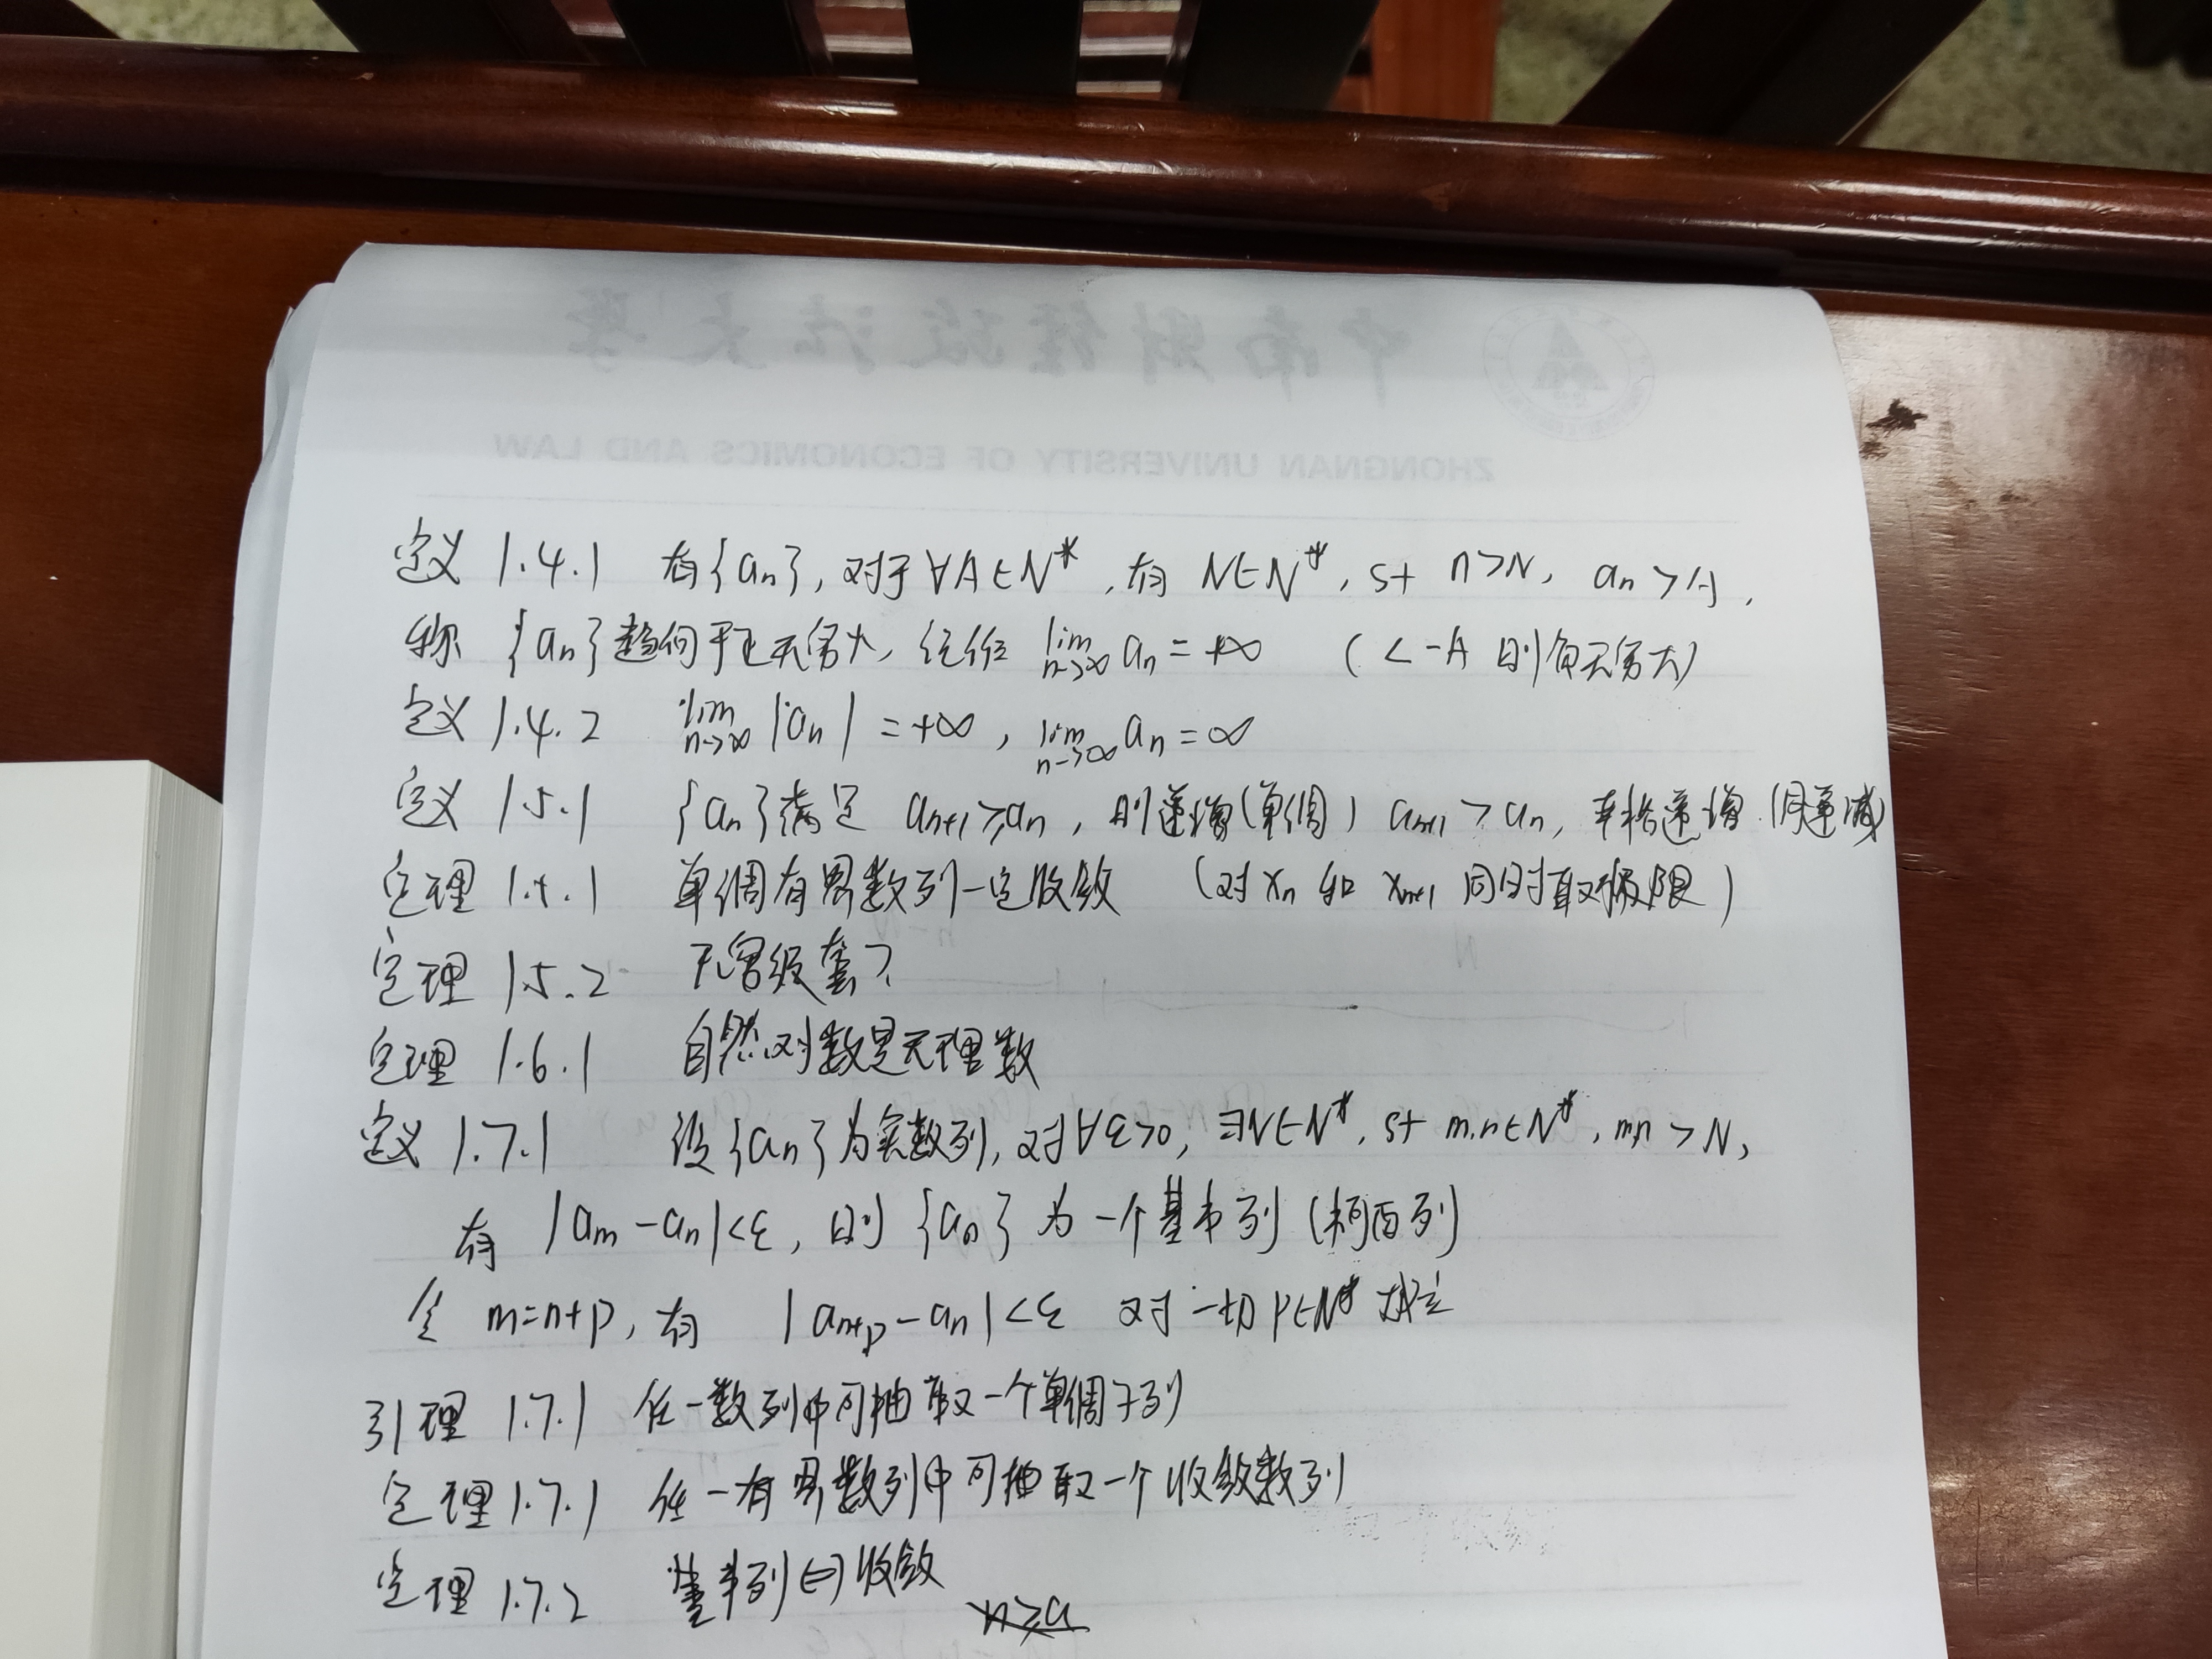 中南财经政法大学
ZHONGNAN UNIVERSITY OF ECONOMICS AND LAW
定义 1.4.1 有{an}, 对于∀A∈N*, 有 N∈N*, st n>N, an>A,
称 {an}趋向于正无穷大, 记作 lim n→∞ an=+∞ (<-A 则负无穷大)
定义 1.4.2 lim n→∞ |an|=+∞, lim n→∞ an=∞
定义 1.5.1 {an}满足 an+1≥an, 则递增(单调) an+1>an, 严格递增.(同递减
定理 1.5.1 单调有界数列一定收敛 (对xn 和 xn+1 同时取极限)
定理 1.5.2
定理 1.6.1 自然对数是无理数
定义 1.7.1 设{an}为实数列, 对∀ε>0, ∃N∈N*, st m.n∈N*, m,n>N,
有 |am-an|<ε, 则 {an} 为一个基本列(柯西列)
令 m=n+p, 有 |an+p-an|<ε 对一切p∈N* 成立
引理 1.7.1 任一数列中可抽取一个单调子列
定理 1.7.1 任一有界数列中可抽取一个收敛数列
定理 1.7.2 基本列⇔收敛